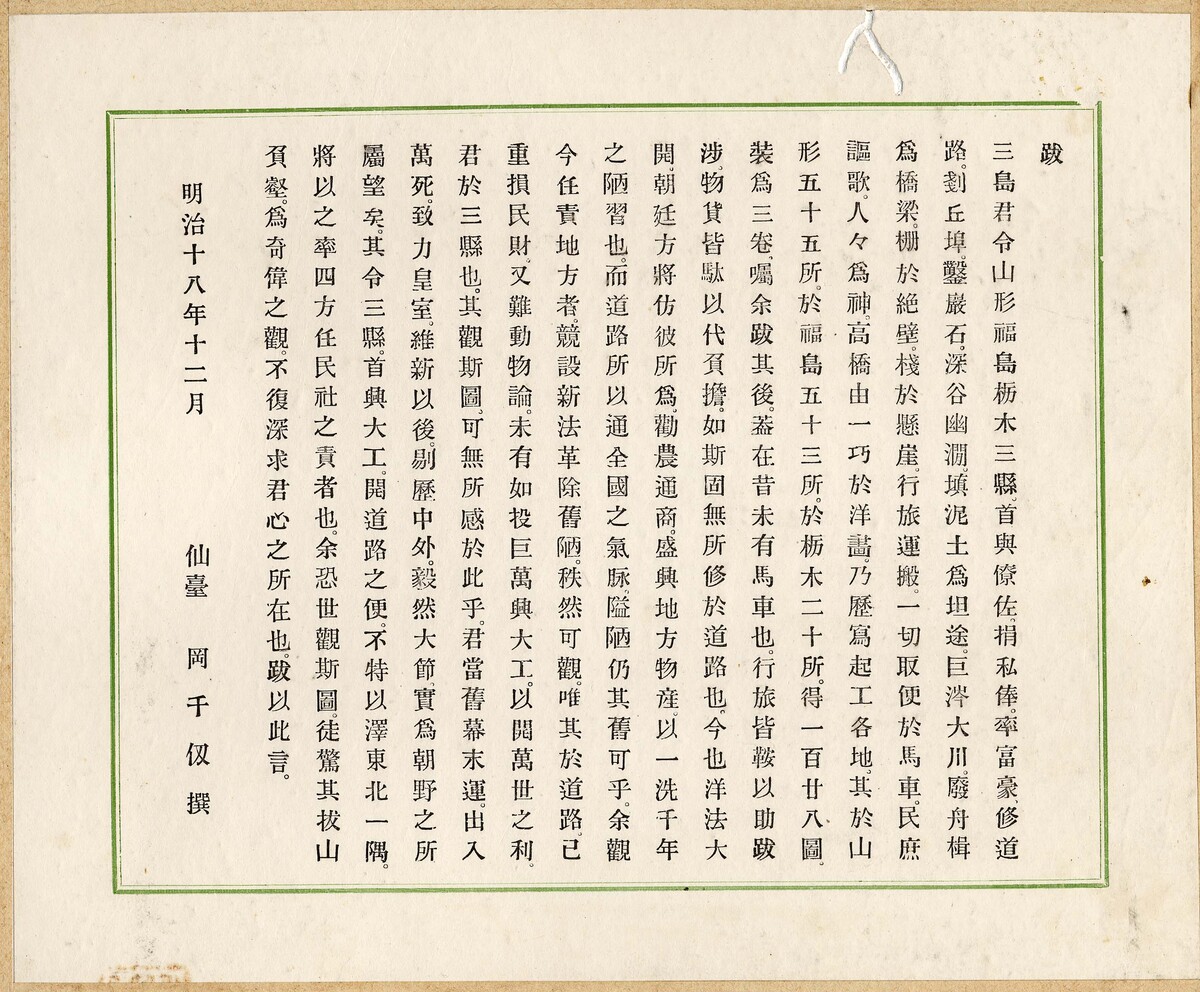 跋
三島君令山形福島栃木三縣、首與僚佐。捐私俸。率富豪、修道
路。剗丘埠。鑿巖石。深谷幽澗。填泥土爲坦途。巨涔大川。廢舟楫
爲橋梁。柵於絶壁。棧於懸崖。行旅運搬。一切取便於馬車。民庶
謳歌。人々爲神。高橋由一巧於洋畵。乃歷寫起工各地。其於山
形五十五所。於福島五十三所。於栃木二十所。得一百廿八圖。
裝爲三卷、囑余跋其後。葢在昔未有馬車也。行旅皆鞍以助跋
涉、物貨皆駄以代負擔。如斯固無所修於道路也、今也洋法大
開、朝廷方將仿彼所爲、勸農通商。盛興地方物產。以一洗千年
之陋習也。而道路所以通全國之氣脉。隘陋仍其舊可乎。余觀
今任責地方者。競設新法革除舊陋。秩然可觀。唯其於道路。已
重損民財、又難動物論。未有如投巨萬興大工。以開萬世之利。
君於三縣也。其觀斯圖、可無所感於此乎。君當舊幕末運。出入
萬死。致力皇室。維新以後。剔歷中外。毅然大節、實爲朝野之所
屬望矣。其令三縣。首興大工。開道路之便。不特以澤東北一隅。
將以之率四方任民社之責者也。余恐世觀斯圖。徒驚其拔山
頁壑。爲奇偉之觀。不復深求君心之所在也。跋以此言。
明治十八年十二月　仙臺　岡千仭　撰